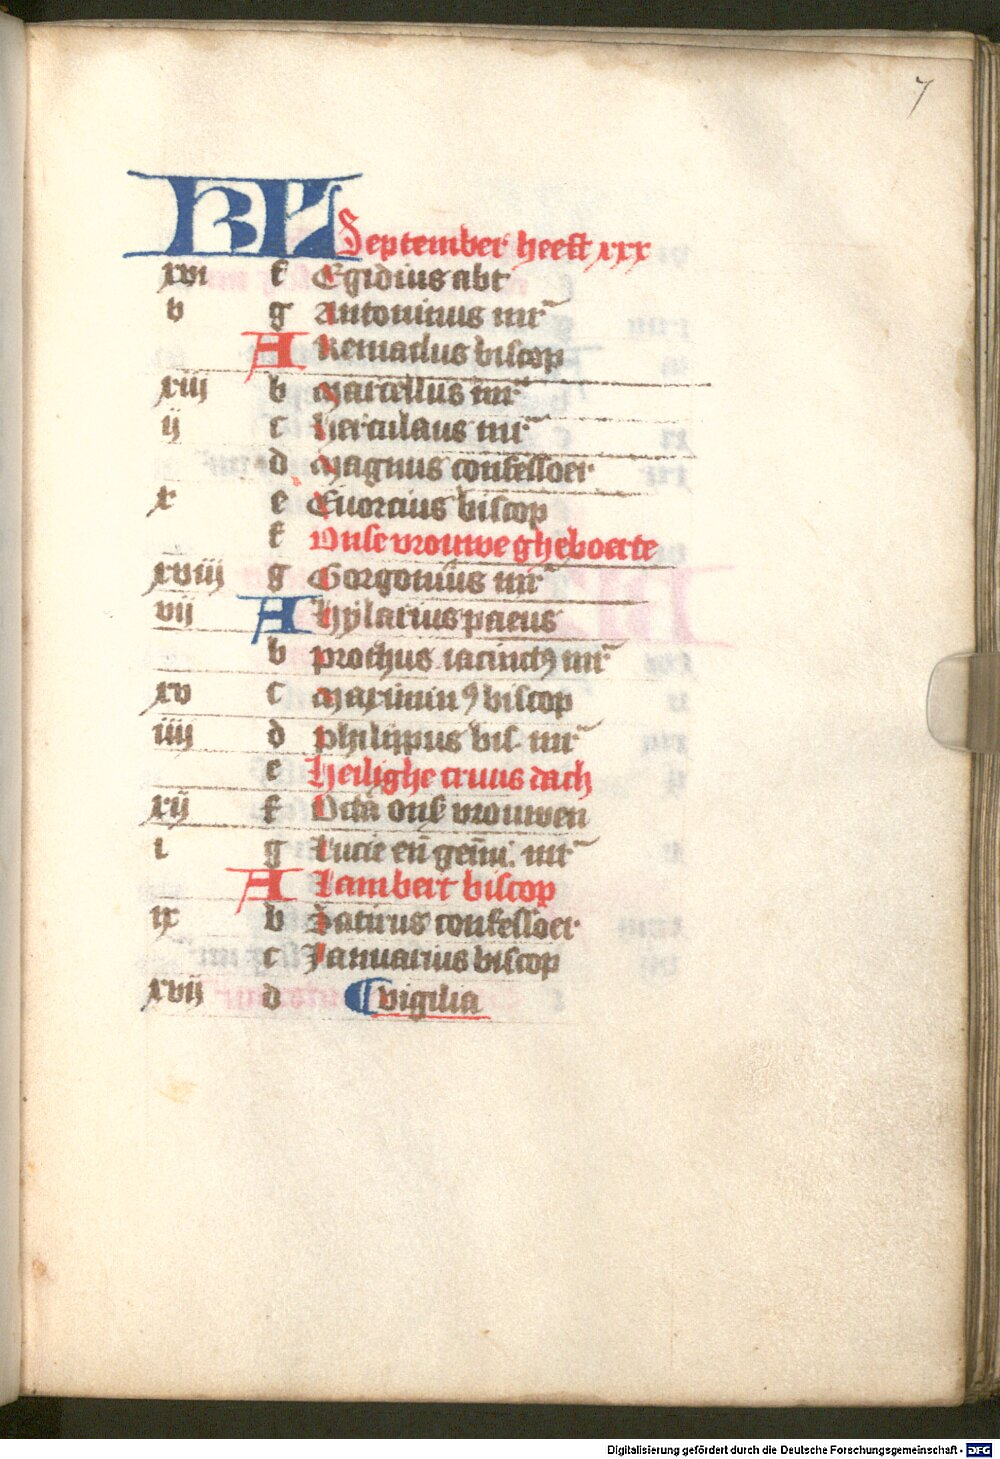 7
KL September heeft xxx
xvi f Egidius abt
v g Antoninus mr̄
A Remaclus biscop
xiii b Marcellus mr̄
ij c herculaus mr̄
d Magnus confessoer
x e Euorcius biscop
f Onse vrouwe gheboerte
xviij g Gorgonius mr̄
vij A hylarius paeus
b prothus iacinctꝰ mr̄
xv c Maximinꝰ biscop
iiij d philippus bis. mr̄
e Heilighe cruus dach
xij f Octā ons vrouwen
i g Lucie en̄ gemi. mr̄
A Lambert biscop
ix b Satirus confessoer
c Januarius biscop
xvij d vigilia
Digitalisierung gefördert durch die Deutsche Forschungsgemeinschaft - DFG